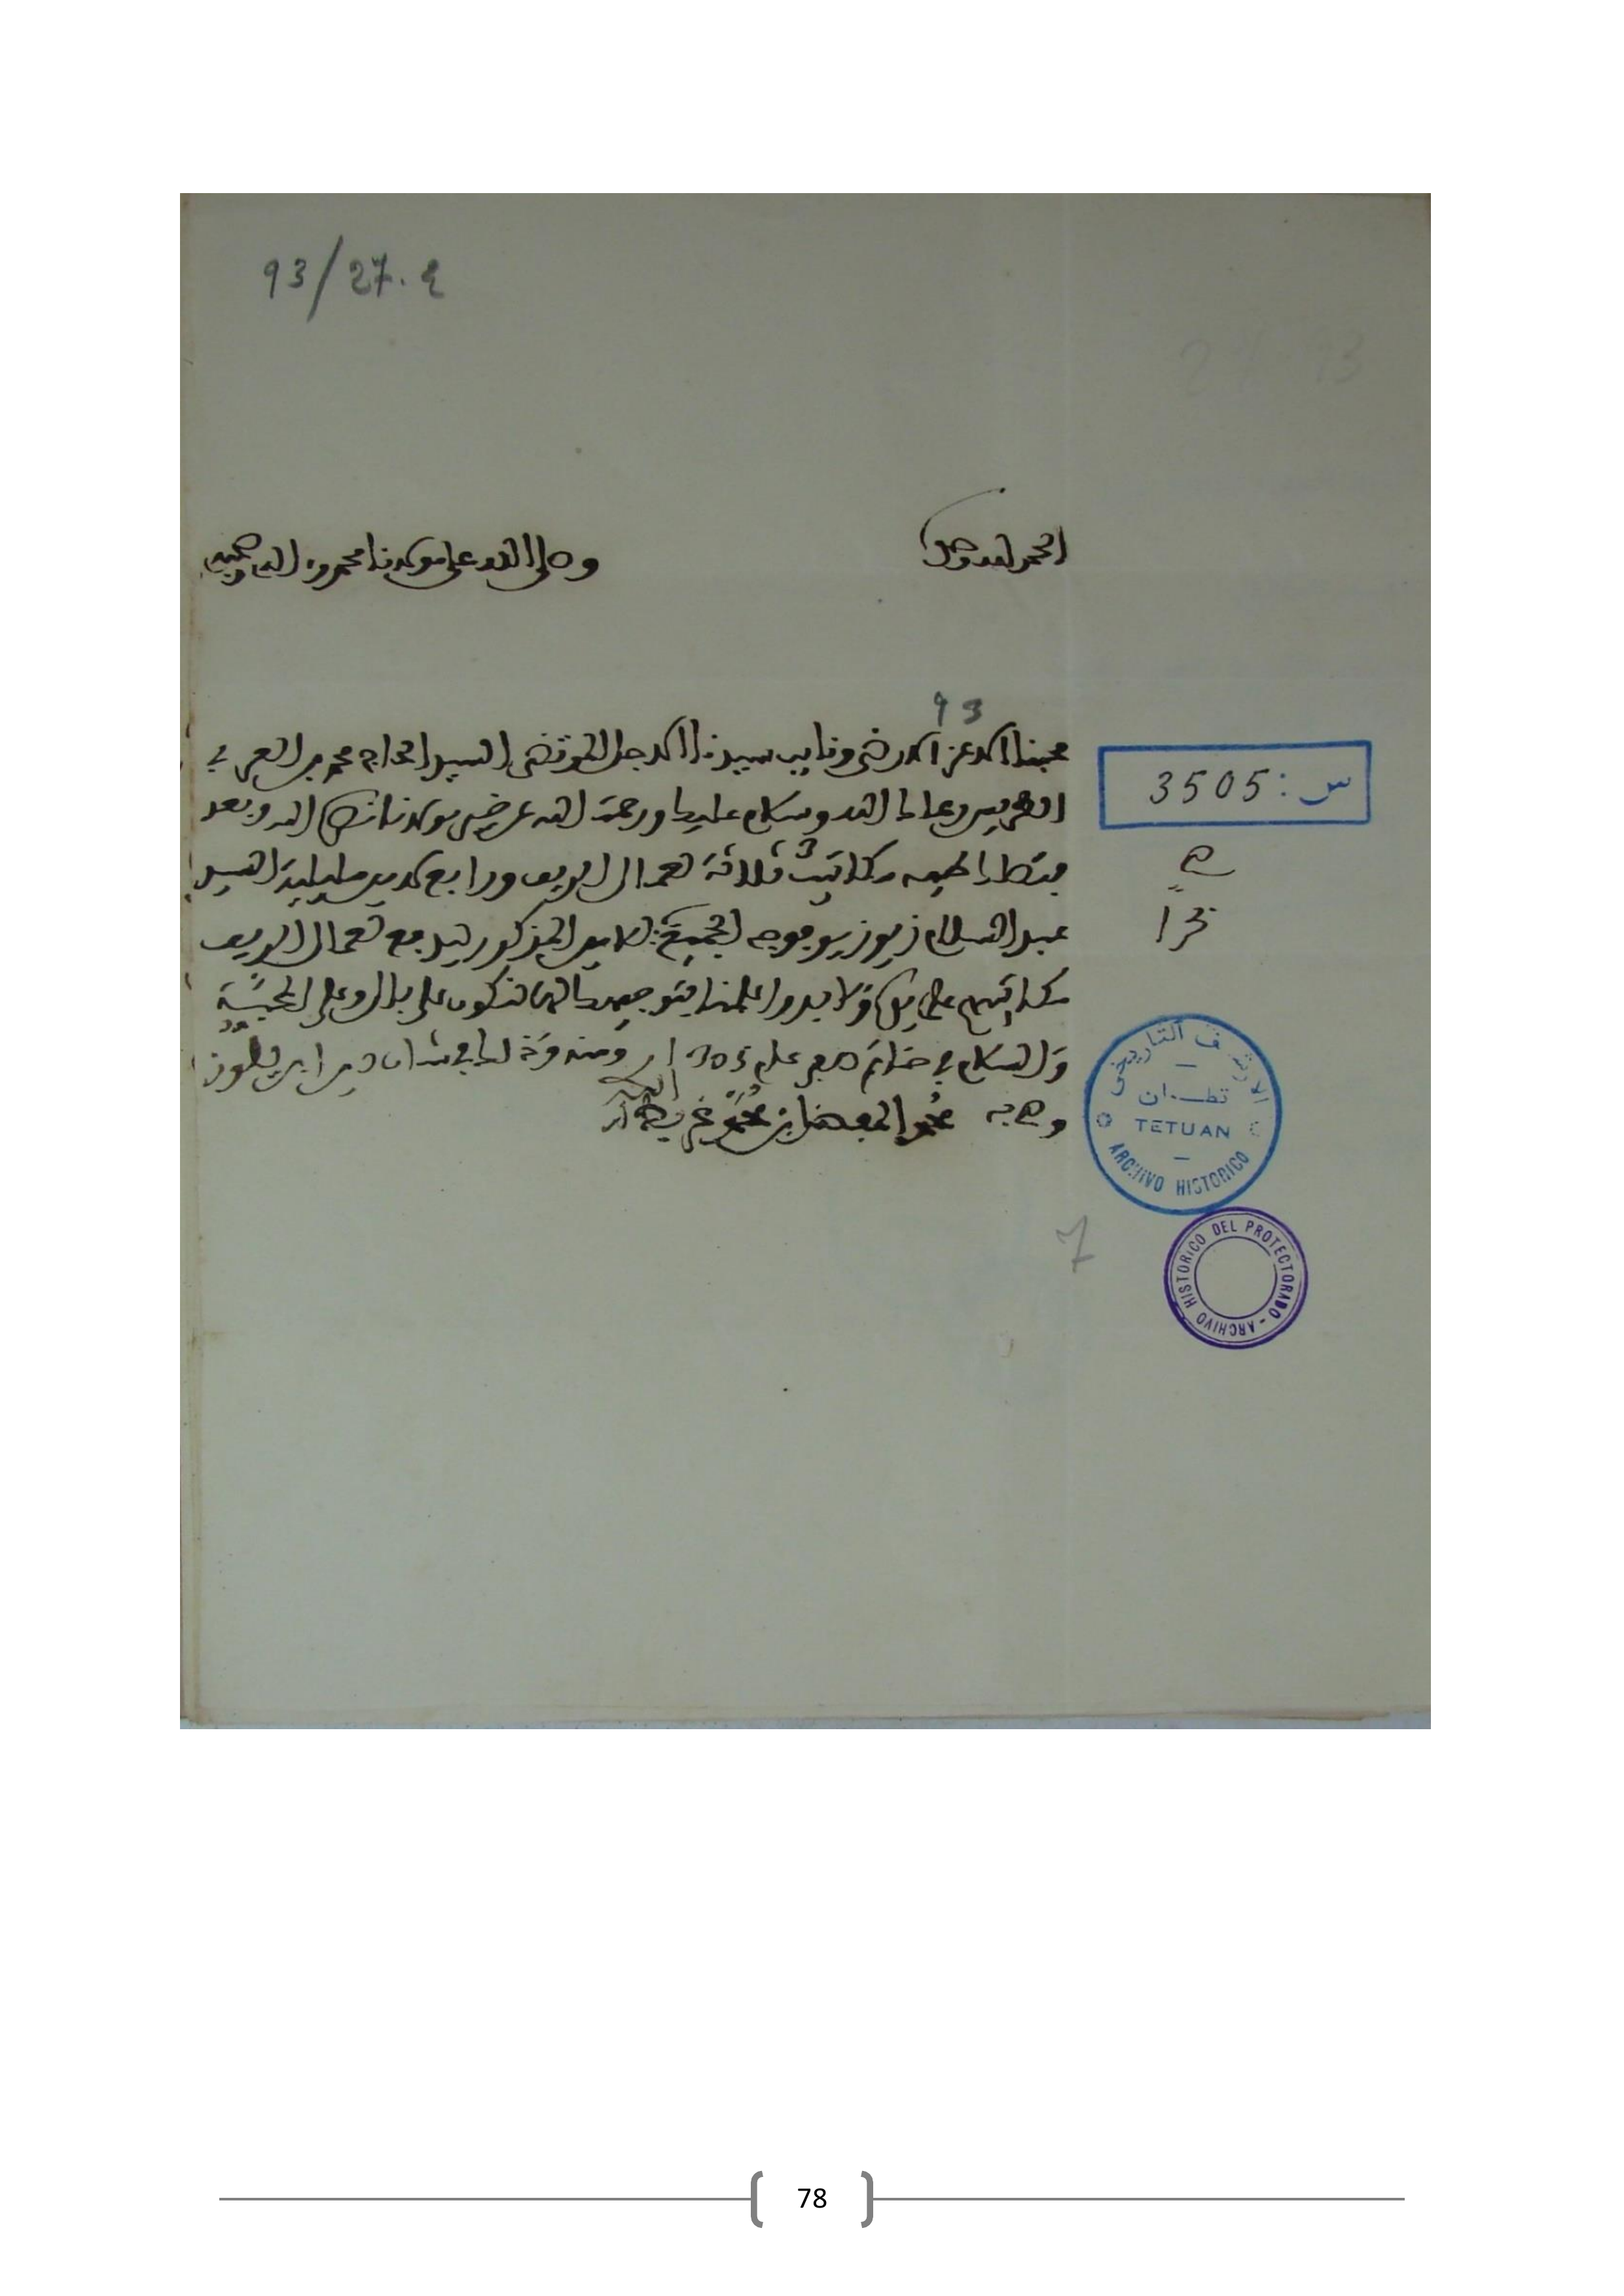 93/27.2
الحمد لله وحده
وصلى الله على مولانا محمد وآله وصحبه
93
محبنا الاعز الارضى ونايب سيدنا الاجل المرتضى السيد الحاج محمد بن العربي
الطريس رعاك الله وسلام عليك ورحمت الله عن خير مولانا نصره الله وبعد
فتصلك طيه مكاتيب ثلاثة لعمال الريف ورابع لامين مليلية السيد
عبد السلام فوجه الجميع للامين المذكور ليدفع لعمال الريف
مكاتبهم على يده ولابد واعلمنا بتوجيهك لها لنكون على بال وعلى المحبة
والسلام في صفر عام 1305 ومنه
محمد المفضل بن محمد غريط
س : 3505
الارشيف التاريخي
تطـوان
TETUAN
ARCHIVO HISTORICO
ARCHIVO HISTORICO DEL PROTECTORADO -
7
78